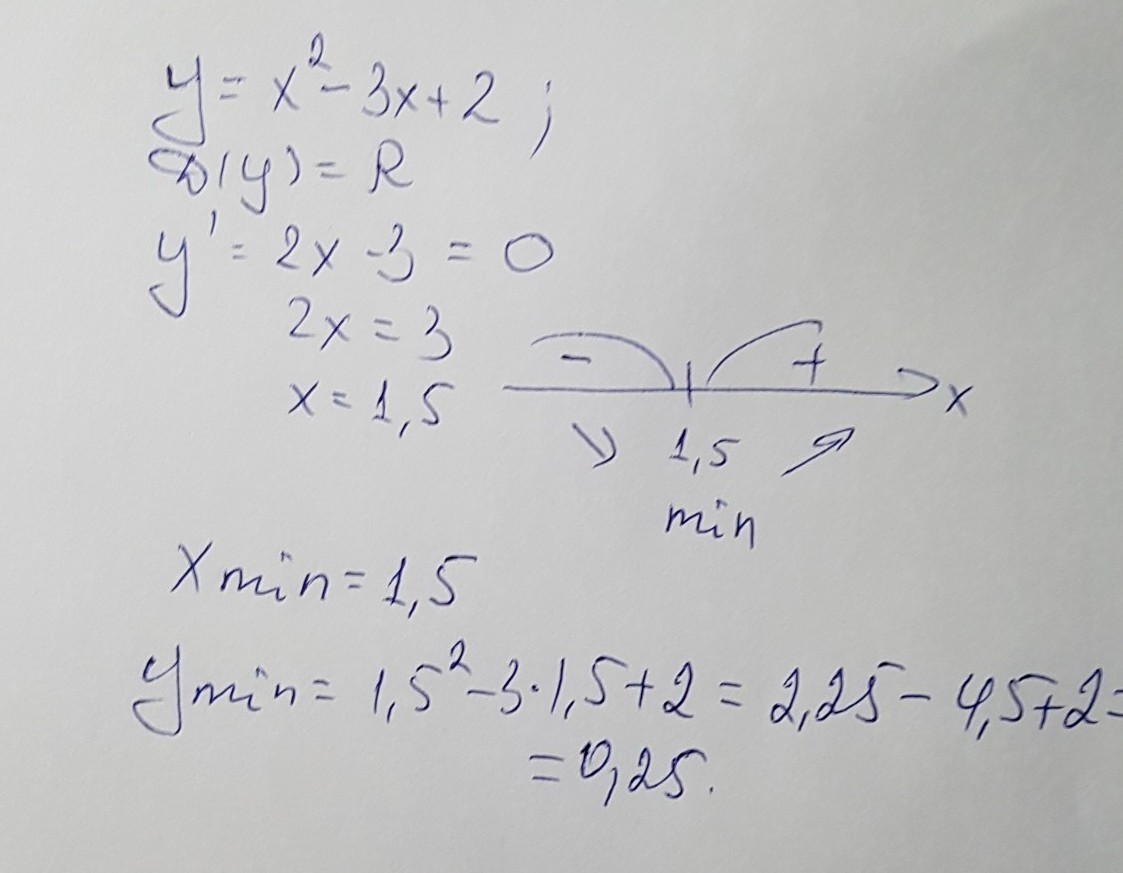 y = x² - 3x + 2 ;
D(y) = R
y' = 2x - 3 = 0
2x = 3
x = 1,5
- + x
1,5
min
x min = 1,5
y min = 1,5² - 3·1,5 + 2 = 2,25 - 4,5 + 2 =
= 0,25.